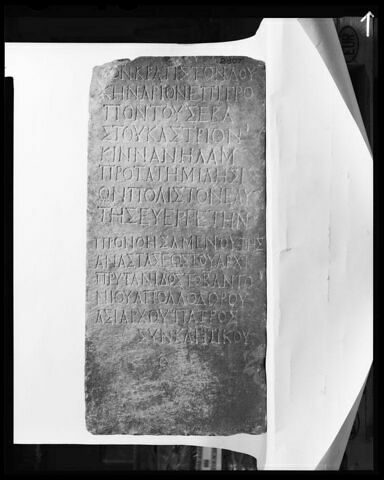 ΤΟΝΚΡΑΤΙΣΤΟΝΔΟΥ
ΚΗΝΑΡΙΟΝΕΠΙΤΡΟ
ΠΟΝΤΟΥΣΕΒΑ
ΣΤΟΥΚΑΣΤΡΙΟΝ
ΚΙΝΝΑΝΗΛΑΜ
ΠΡΟΤΑΤΗΜΙΛΗΣΙ
ΩΝΠΟΛΙΣΤΟΝΕΑΥ
ΤΗΣΕΥΕΡΓΕΤΗΝ
ΠΡΟΝΟΗΣΑΜΕΝΟΥΤΗΣ
ΑΝΑΣΤΑΣΕΩΣΤΟΥΑΡΧΙ
ΠΡΥΤΑΝΙΔΟΣΤΟΒΑΝΤΩ
ΝΙΟΥΑΠΟΛΛΟΔΩΡΟΥ
ΑΣΙΑΡΧΟΥΠΑΤΡΟΣ
ΣΥΝΚΛΗΤΙΚΟΥ